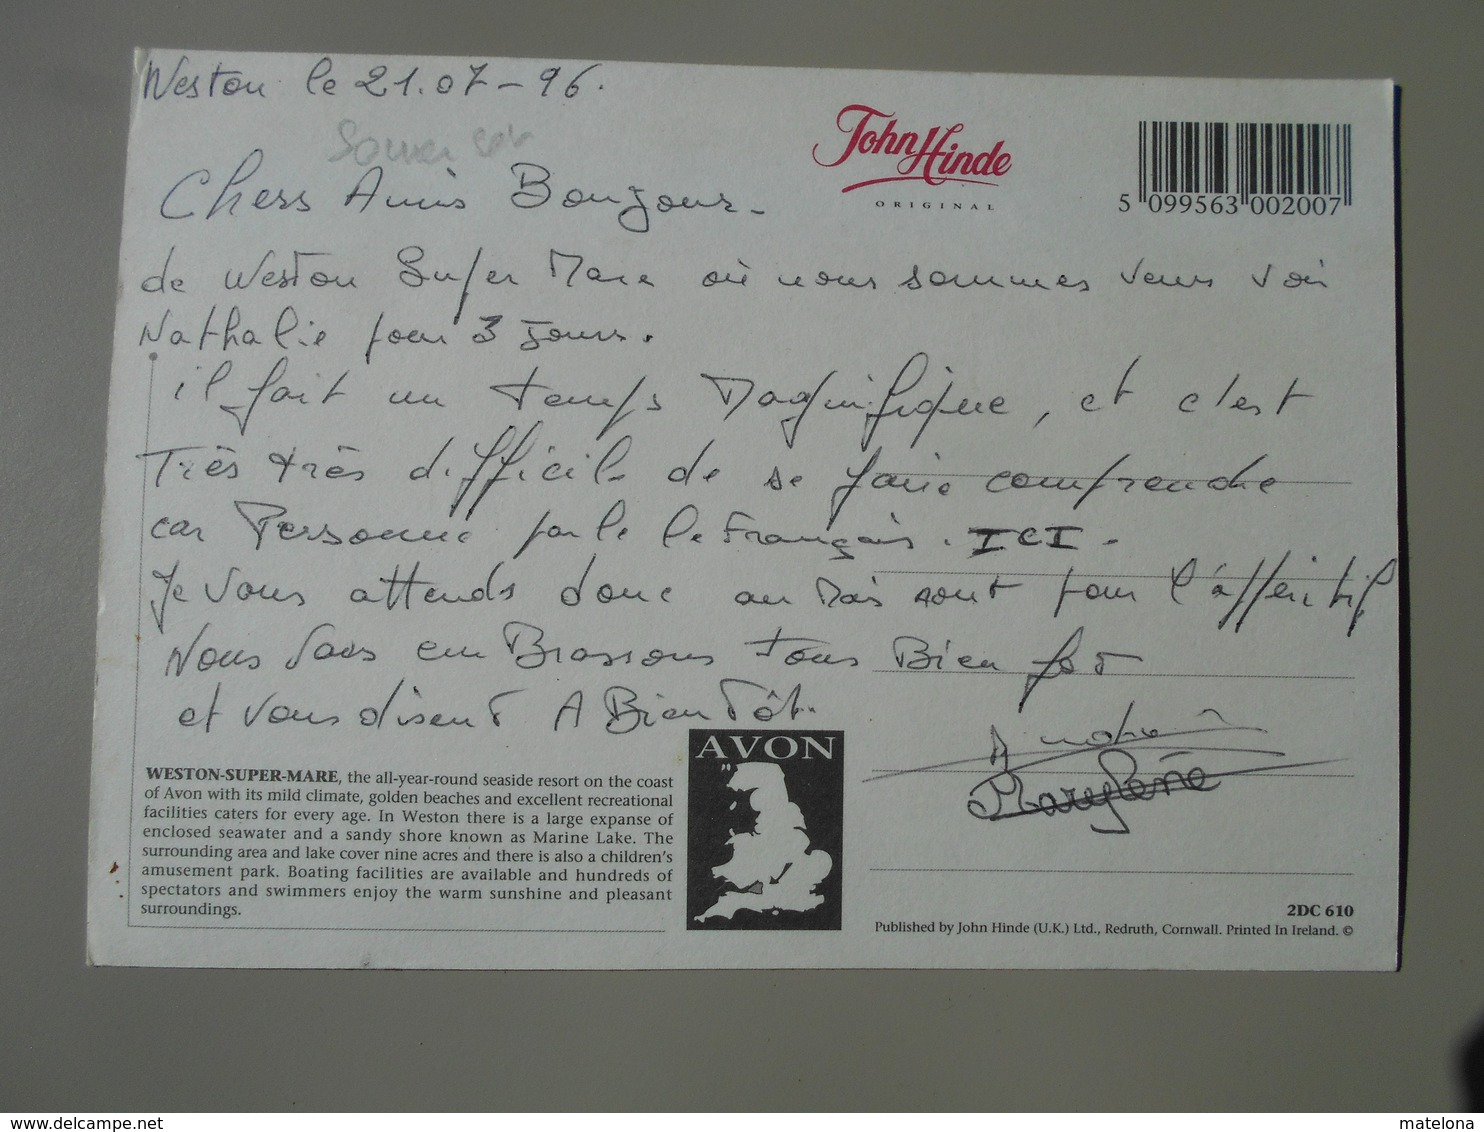 Weston le 21.07-96.
John Hinde
ORIGINAL
5 099563 002007
Chers Amis Bonjour-
de Weston Super Mare où nous sommes venus voir
Nathalie pour 3 Jours.
il fait un temps Magnifique, et c'est
Très très difficile de se faire comprendre
car Personne parle le Français. ICI-
Je vous attends donc au Mois août pour l'appéritif
Nous Vous embrassons tous Bien fort
et vous disent A Bientôt.
André
Marylène
AVON
WESTON-SUPER-MARE, the all-year-round seaside resort on the coast
of Avon with its mild climate, golden beaches and excellent recreational
facilities caters for every age. In Weston there is a large expanse of
enclosed seawater and a sandy shore known as Marine Lake. The
surrounding area and lake cover nine acres and there is also a children's
amusement park. Boating facilities are available and hundreds of
spectators and swimmers enjoy the warm sunshine and pleasant
surroundings.
2DC 610
Published by John Hinde (U.K.) Ltd., Redruth, Cornwall. Printed In Ireland. ©
www.delcampe.net
matelona